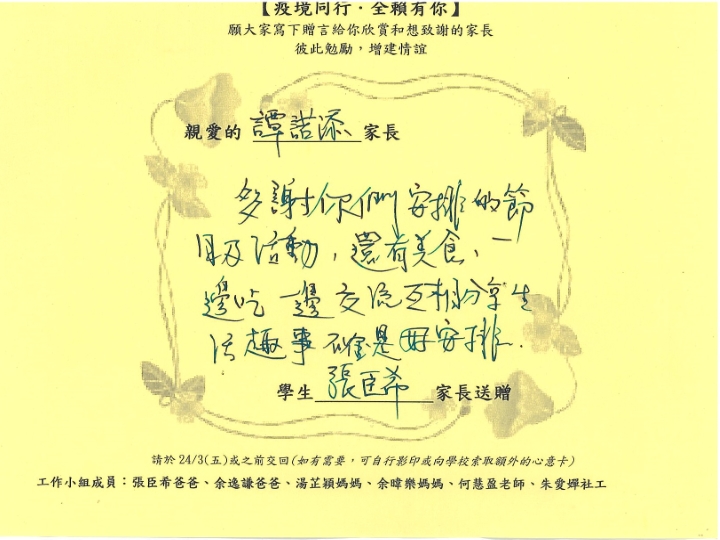 【疫境同行．全賴有你】
願大家寫下贈言給你欣賞和想致謝的家長
彼此勉勵，增建情誼
親愛的 譚諾添 家長
多謝你們安排的節
目及活動，還有美食、一
邊吃一邊交流互相分享生
活趣事確是好安排.
學生 張臣希 家長送贈
請於 24/3(五)或之前交回(如有需要，可自行影印或向學校索取額外的心意卡)
工作小組成員：張臣希爸爸、余逸謙爸爸、湯芷穎媽媽、余暐樂媽媽、何慧盈老師、朱愛嬋社工